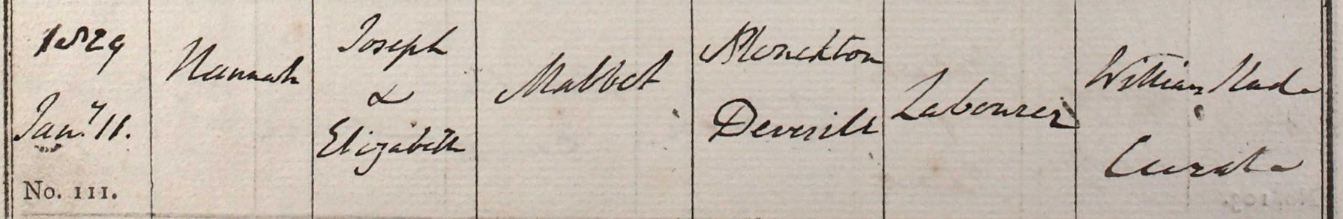 1829
Jany 11.
No. III.
Hannah
Joseph
&
Elizabeth
Mabbet
Monckton
Deverill
Labourer
William Slade
Curate